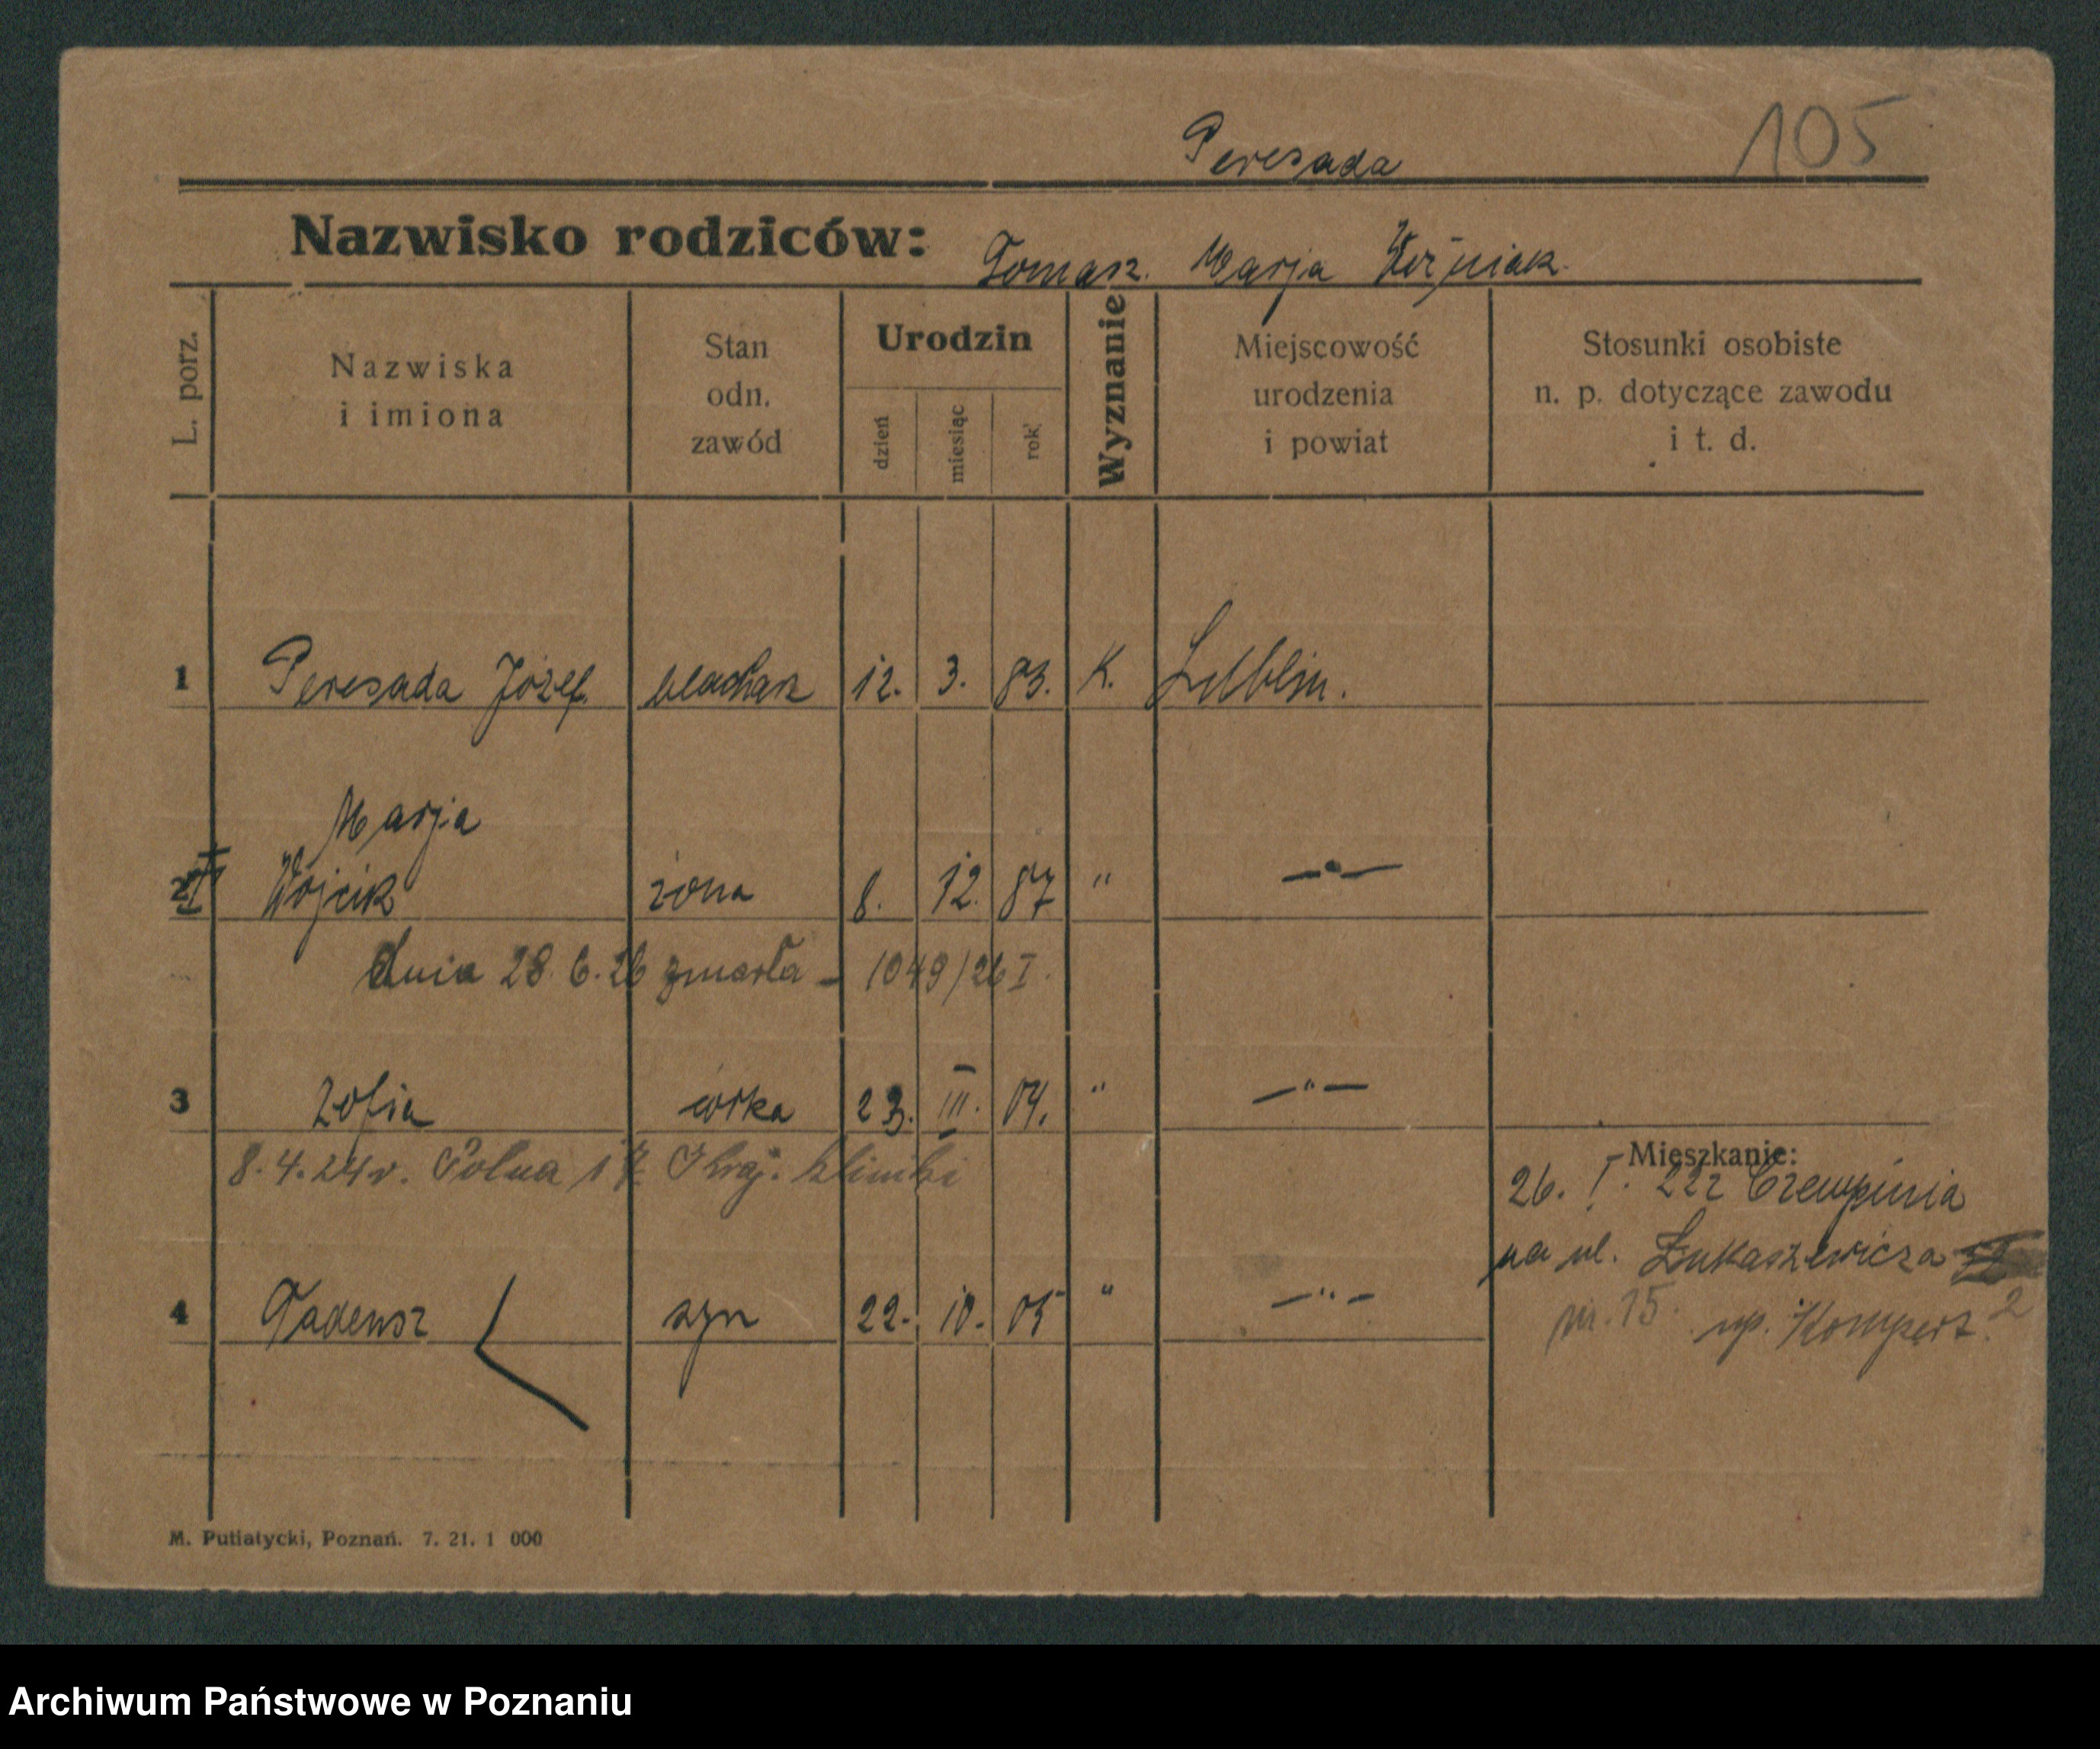 Peresada 105
Nazwisko rodziców: Tomasz. Marja Woźniak.
L. porz.
Nazwiska
i imiona
Stan
odn.
zawód
Urodzin
dzień
miesiąc
rok
Wyznanie
Miejscowość
urodzenia
i powiat
Stosunki osobiste
n. p. dotyczące zawodu
i t. d.
1 Peresada Józef. blacharz 12. 3. 83. K. Lublin.
Marja
2 Wójcik żona 8. 12. 87 " —"—
dnia 28. 6. 26 zmarła – 1049/26 I.
3 Zofia córka 23. III. 04. " —"—
8. 4. 24 r. Polna kliniki
Mieszkanie:
26. I. 22 z Czempinia
na ul. Łukaszewicza
nr. 15. np. Kompert.
4 Tadeusz syn 22. 10. 05 " —"—
M. Putiatycki, Poznań. 7. 21. 1 000
Archiwum Państwowe w Poznaniu